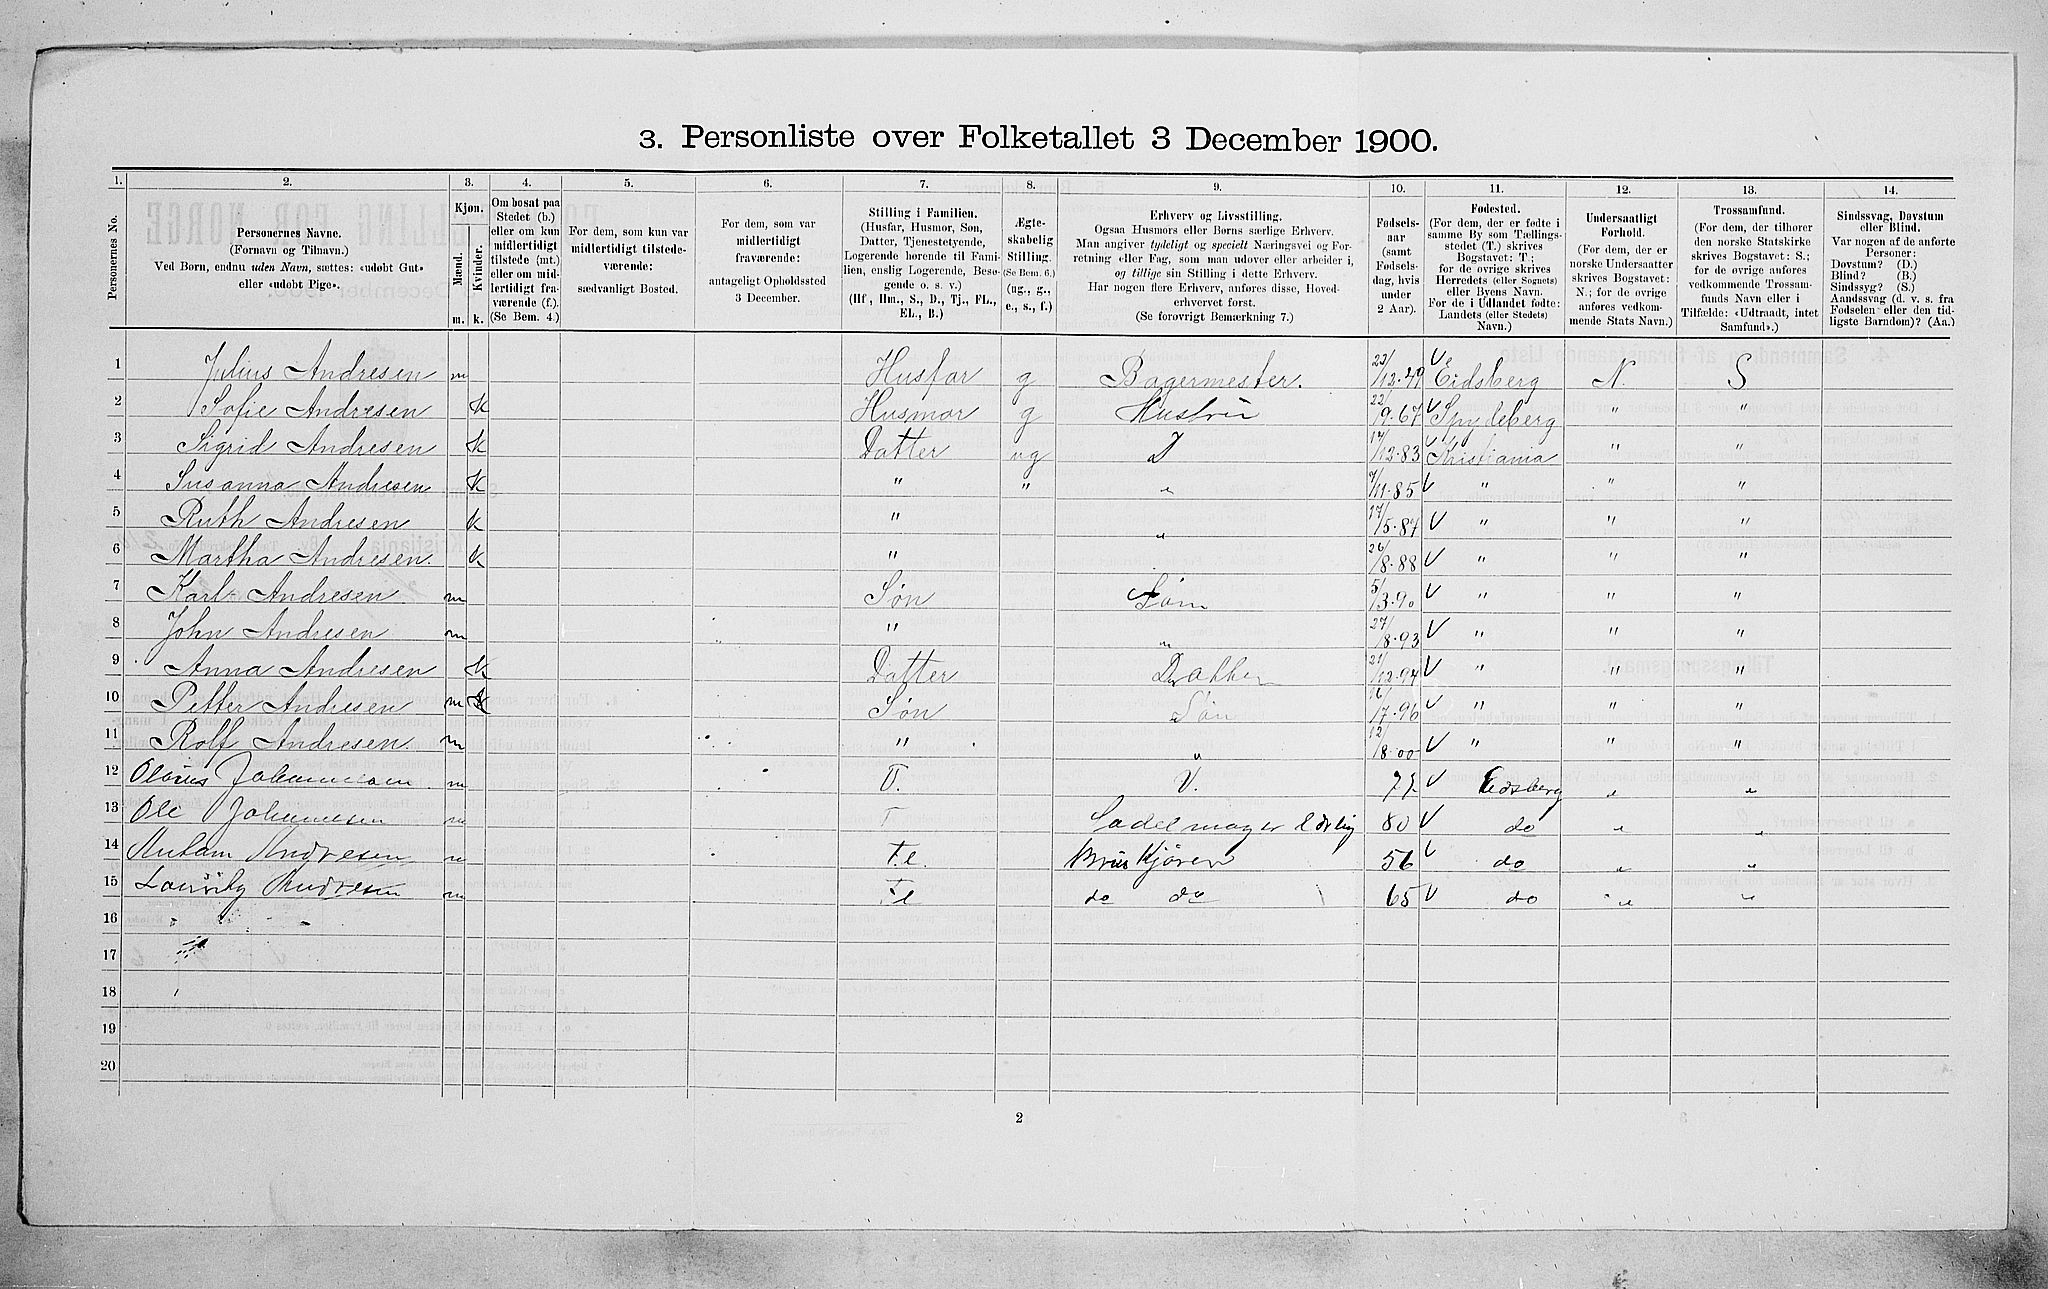 3. Personliste over Folketallet 3 December 1900.
1. 2. 3. 4. 5. 6. 7. 8. 9. 10. 11. 12. 13. 14.
Personernes No.
Personernes Navne.
(Fornavn og Tilnavn.)
Ved Børn, endnu uden Navn, sættes: «udøbt Gut»
eller «udøbt Pige».
Kjøn.
Mænd. Kvinder.
m. k.
Om bosat paa
Stedet (b.)
eller om kun
midlertidigt
tilstede (mt.)
eller om mid-
lertidigt fra-
værende (f.)
(Se Bem. 4.)
For dem, som kun var
midlertidigt tilstede-
værende:
sædvanligt Bosted.
For dem, som var
midlertidigt
fraværende:
antageligt Opholdssted
3 December.
Stilling i Familien.
(Husfar, Husmor, Søn,
Datter, Tjenestetyende,
Logerende hørende til Fami-
lien, enslig Logerende, Besø-
gende o. s. v.)
(Hf, Hm., S., D., Tj., FL.,
EL., B.)
Ægte-
skabelig
Stilling.
(Se Bem. 6.)
(ug., g.,
e., s., f.)
Erhverv og Livsstilling.
Ogsaa Husmors eller Børns særlige Erhverv.
Man angiver tydeligt og specielt Næringsvei og For-
retning eller Fag, som man udøver eller arbeider i,
og tillige sin Stilling i dette Erhverv.
Har nogen flere Erhverv, anføres disse, Hoved-
erhvervet først.
(Se forøvrigt Bemærkning 7.)
Fødsels-
aar
(samt
Fødsels-
dag, hvis
under
2 Aar).
Fødested.
(For dem, der er fødte i
samme By som Tællings-
stedet (T.) skrives
Bogstavet: T.;
for de øvrige skrives
Herredets (eller Sognets)
eller Byens Navn.
For de i Udlandet fødte:
Landets (eller Stedets)
Navn.)
Undersaatligt
Forhold.
(For dem, der er
norske Undersaatter
skrives Bogstavet:
N.; for de øvrige
anføres vedkom-
mende Stats Navn.)
Trossamfund.
(For dem, der tilhører
den norske Statskirke
skrives Bogstavet: S.;
for de øvrige anføres
vedkommende Trossam-
funds Navn eller i
Tilfælde: «Udtraadt, intet
Samfund».)
Sindssvag, Døvstum
eller Blind.
Var nogen af de anførte
Personer:
Døvstum? (D.)
Blind? (B.)
Sindssyg? (S.)
Aandssvag (d. v. s. fra
Fødselen eller den tid-
ligste Barndom)? (Aa.)
1 Julius Andresen m Husfar g Bagermester. 23/12.49 Eidsberg N. S
2 Sofie Andresen K Husmor g Hustru 22/9.67 Spydeberg " "
3 Sigrid Andresen K Datter ug D 17/12.83 Kristiania " "
4 Susanna Andresen K " " " 7/11.85 " " "
5 Ruth Andresen K " " 17/5.87 " " "
6 Martha Andresen. K " 26/8.88 " " "
7 Karl Andresen m Søn Søn 5/3.90 " " "
8 John Andresen m " " 27/8.93 " " "
9 Anna Andresen K Datter Datter 21/12.94 " " "
10 Petter Andresen m Søn Søn 16/7.96 " " "
11 Rolf Andresen. m " " 12/8.00 " " "
12 Johannesen m 77 Eidsberg " "
13 Ole Johannesen m T Sadelmager 80 do " "
14 Andresen m 56 do " "
15 Andresen m do do 65 do " "
16
17
18
19
20
2